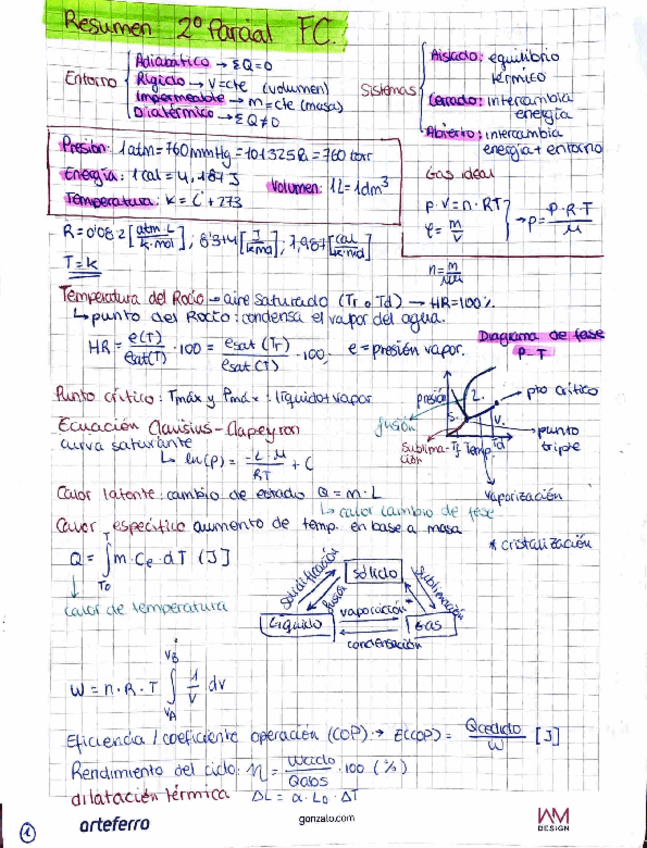 Resumen 2º Parcial FC.
Entorno
Adiabático → ΣQ=0
Rígido → V=cte (volumen)
Impermeable → m=cte (masa)
Diatérmico → ΣQ≠0
Sistemas
Aislado: equilibrio
térmico
Cerrado: intercambia
energía
Abierto: intercambia
energía + entorno
Presión: 1atm=760mmHg=101325Pa=760 torr
Energía: 1cal=4,187J
Volumen: 1L=1dm³
Temperatura: K= C + 273
Gas ideal
P·V=n·RT
ρ=m/V
→ P=ρ·R·T/μ
n=m/μ
R=0'082[atm·L/K·mol]; 8'314[J/K·mol]; 1,987[cal/K·mol]
T=K
Temperatura del Rocío → aire saturado (Tr o Td) → HR=100%
↳ punto del Rocío: condensa el vapor del agua.
HR= e(T)/esat(T) ·100 = esat(Tr)/esat(T) ·100; e=presión vapor.
Diagrama de fase
P-T
Punto crítico: Tmáx y Pmáx: líquido+vapor
presión
pto crítico
fusión
S.
L.
V.
punto
triple
Sublima-
ción
Tf Temp. Td
vaporización
Ecuación Clausius-Clapeyron
curva saturante
↳ ln(P)= -L·μ/RT + C
Calor latente: cambio de estado Q=m·L
↳ calor cambio de fase
Calor específico aumento de temp. en base a masa
* cristalización
Q=∫ T T0 m·Ce·dT (J)
↓
calor de temperatura
Sólido
Solidificación
fusión
Sublimación
*
Líquido
vaporación
Gas
condensación
W=n·R·T ∫ VB VA 1/V dv
Eficiencia / coeficiente operación (COP) → E(COP)= Qcedido/W [J]
Rendimiento del ciclo: η= Wciclo/Qabs ·100 (%)
dilatación térmica ΔL=α·L0·ΔT
1
arteferro
gonzalo.com
IAM
DESIGN